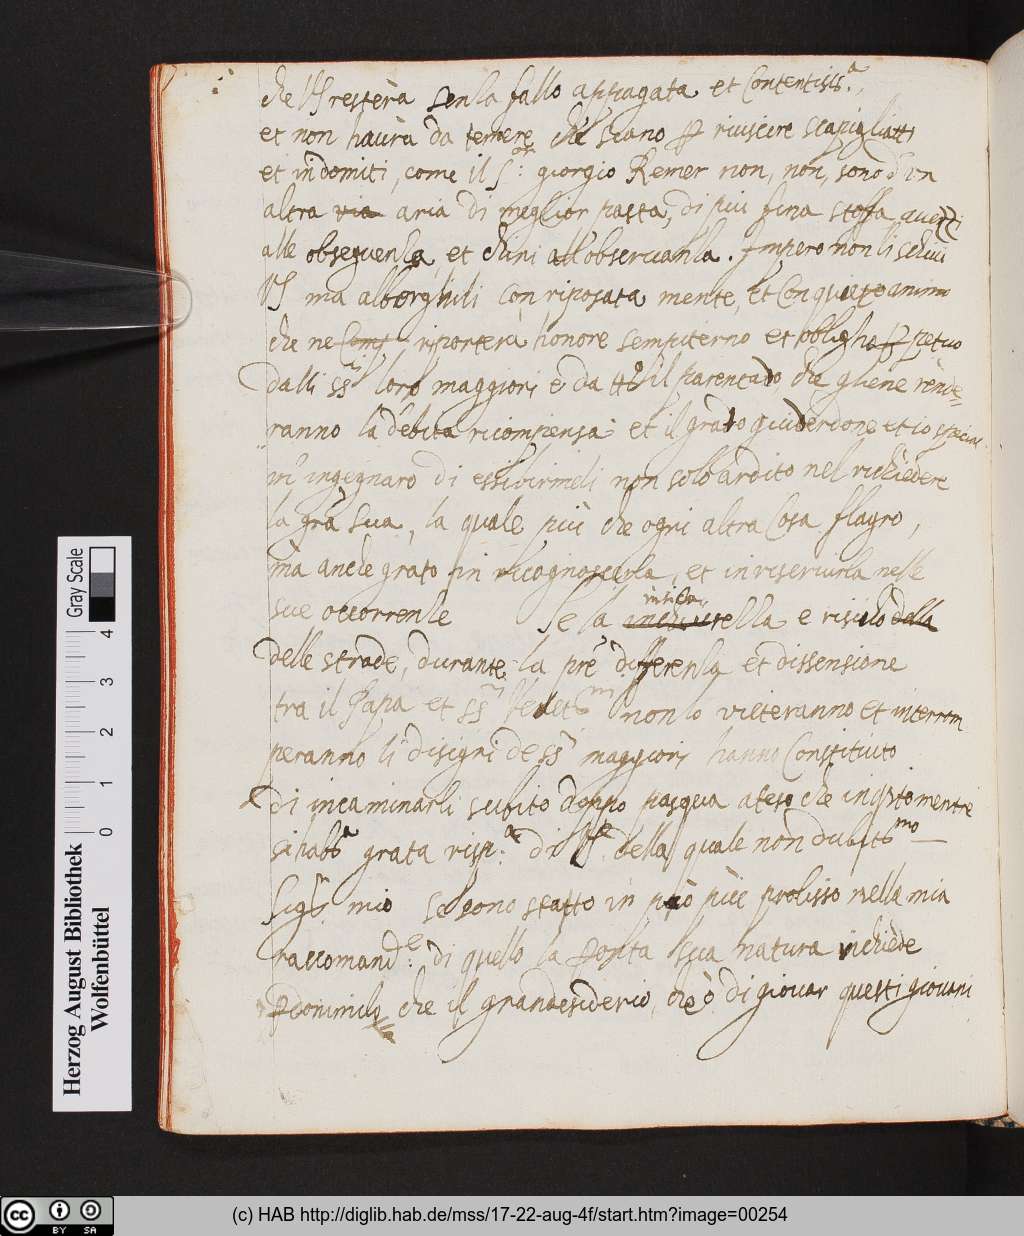 che VS resterà senza fallo appagata et Contentiss.ª,
et non haurà da temere che siano p riuscire scapigliatti
et indomiti, come il S.or giorgio Kemer non, non, sono d'un
altra via aria di meglior pasta, di più fina stoffa, auezzi
alle obseguenza, et chini all'obseruanza. Impero non li schiui
VS ma alberghili con riposata mente, et Con quieto animo
che ne riporterà honore sempiterno et obligho ppetuo
dalli ssri loro maggiori e da tto il parentado, che gliene rende=
ranno la debita ricompensa et il grato guiderdone et io
m'ingegnaro di essibirmeli non solo ardito nel richiedere
la gra sua, la quale più che ogni altra Cosa flagro,
ma anche grato in ricognoscerla, et in riseruirla nelle
sue occorrenze Se la e risico dalla
delle strade, durante la pre differenza et dissensione
tra il Papa et ssri non lo vieteranno et interrom
peranno li disigni de ssri maggiori hanno Constituito
di incaminarli subito doppo pasqua ateso che in qsto mentre
si habb.ª grata risp.ª di VS. della quale non dubito
Sigr mio se sono statto in più prolisso nella mia
raccomand.e di quello la ponta sua natura richiede
pdonimilo che il gran desiderio, che ò di giouar questi giouani
Herzog August Bibliothek
Wolfenbüttel
Gray Scale
0 1 2 3 4
cc BY SA
(c) HAB http://diglib.hab.de/mss/17-22-aug-4f/start.htm?image=00254